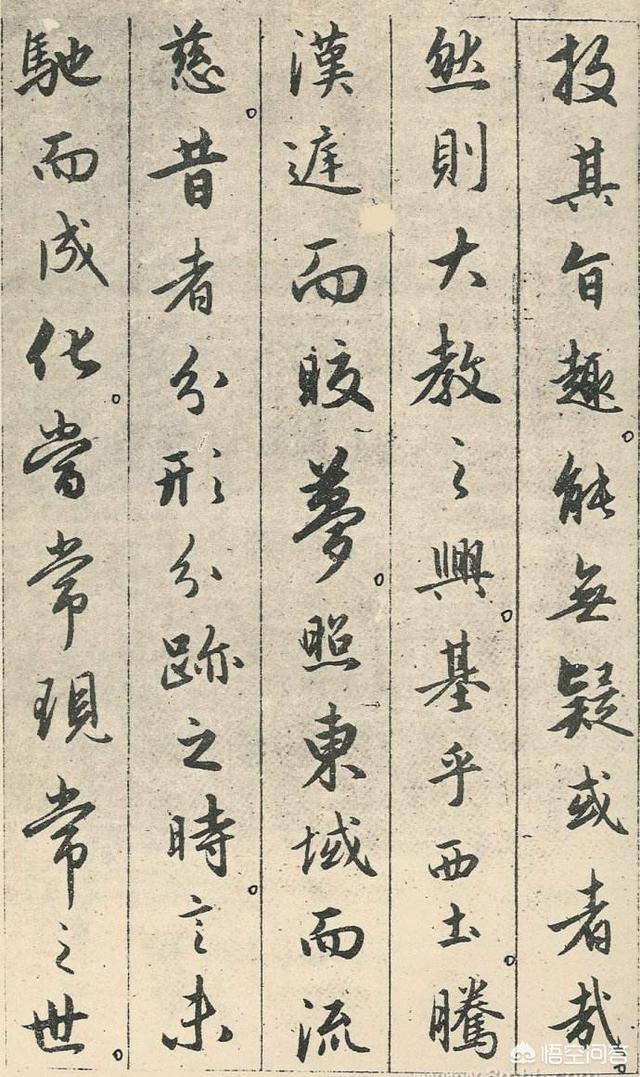 投其旨趣。能無疑或者哉
然則大教之興。基乎西土。騰
漢庭而晈夢。照東域而流
慈。昔者分形分跡之時。言未
馳而成化。當常現常之世。
悟空问答